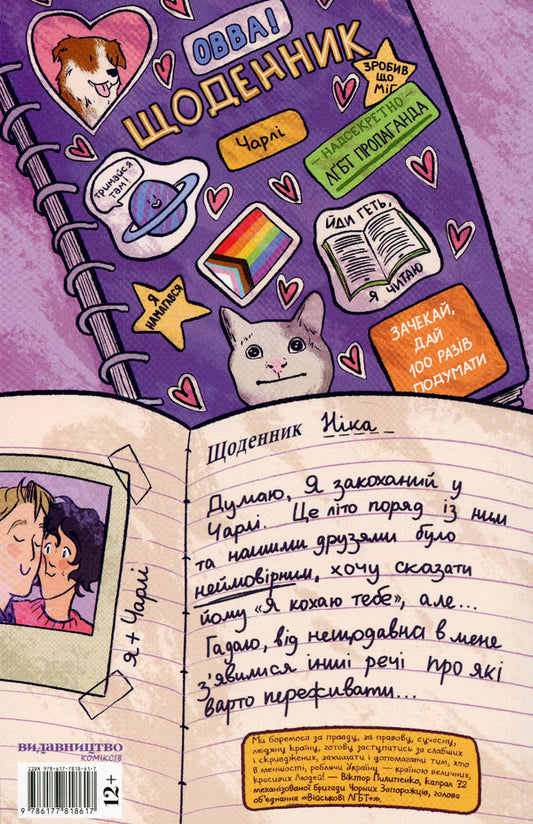 ОВВА!
ЩОДЕННИК
ЗРОБИВ
ЩО
МІГ
Чарлі
НАДСЕКРЕТНО
ЛГБТ ПРОПАГАНДА
ТРИМАЙСЯ
ТАМ!
ЙДИ ГЕТЬ,
Я ЧИТАЮ
Я
НАМАГАВСЯ
ЗАЧЕКАЙ,
ДАЙ
100 РАЗІВ
ПОДУМАТИ
Щоденник Ніка
Думаю, я закоханий у
Чарлі. Це літо поряд із ним
та нашими друзями було
неймовірним, хочу сказати
йому «Я кохаю тебе», але...
Гадаю, від нещодавна в мене
з'явилися інші речі про які
варто переживати...
Я + Чарлі
Ми боремося за правду, за правову, сучасну,
людяну країну, готову заступатись за слабших
і скривджених, захищати і допомагати тим, хто
в меншості, роблячи Україну — країною величних,
красивих Людей! — Віктор Пилипенко, капрал 72
механізованої бригади Чорних Запорожців, голова
об'єднання «Військові ЛГБТ+».
ВИДАВНИЦТВО
КОМІКСІВ
ISBN 978-617-7818-61-7
9 786177 818617
12+